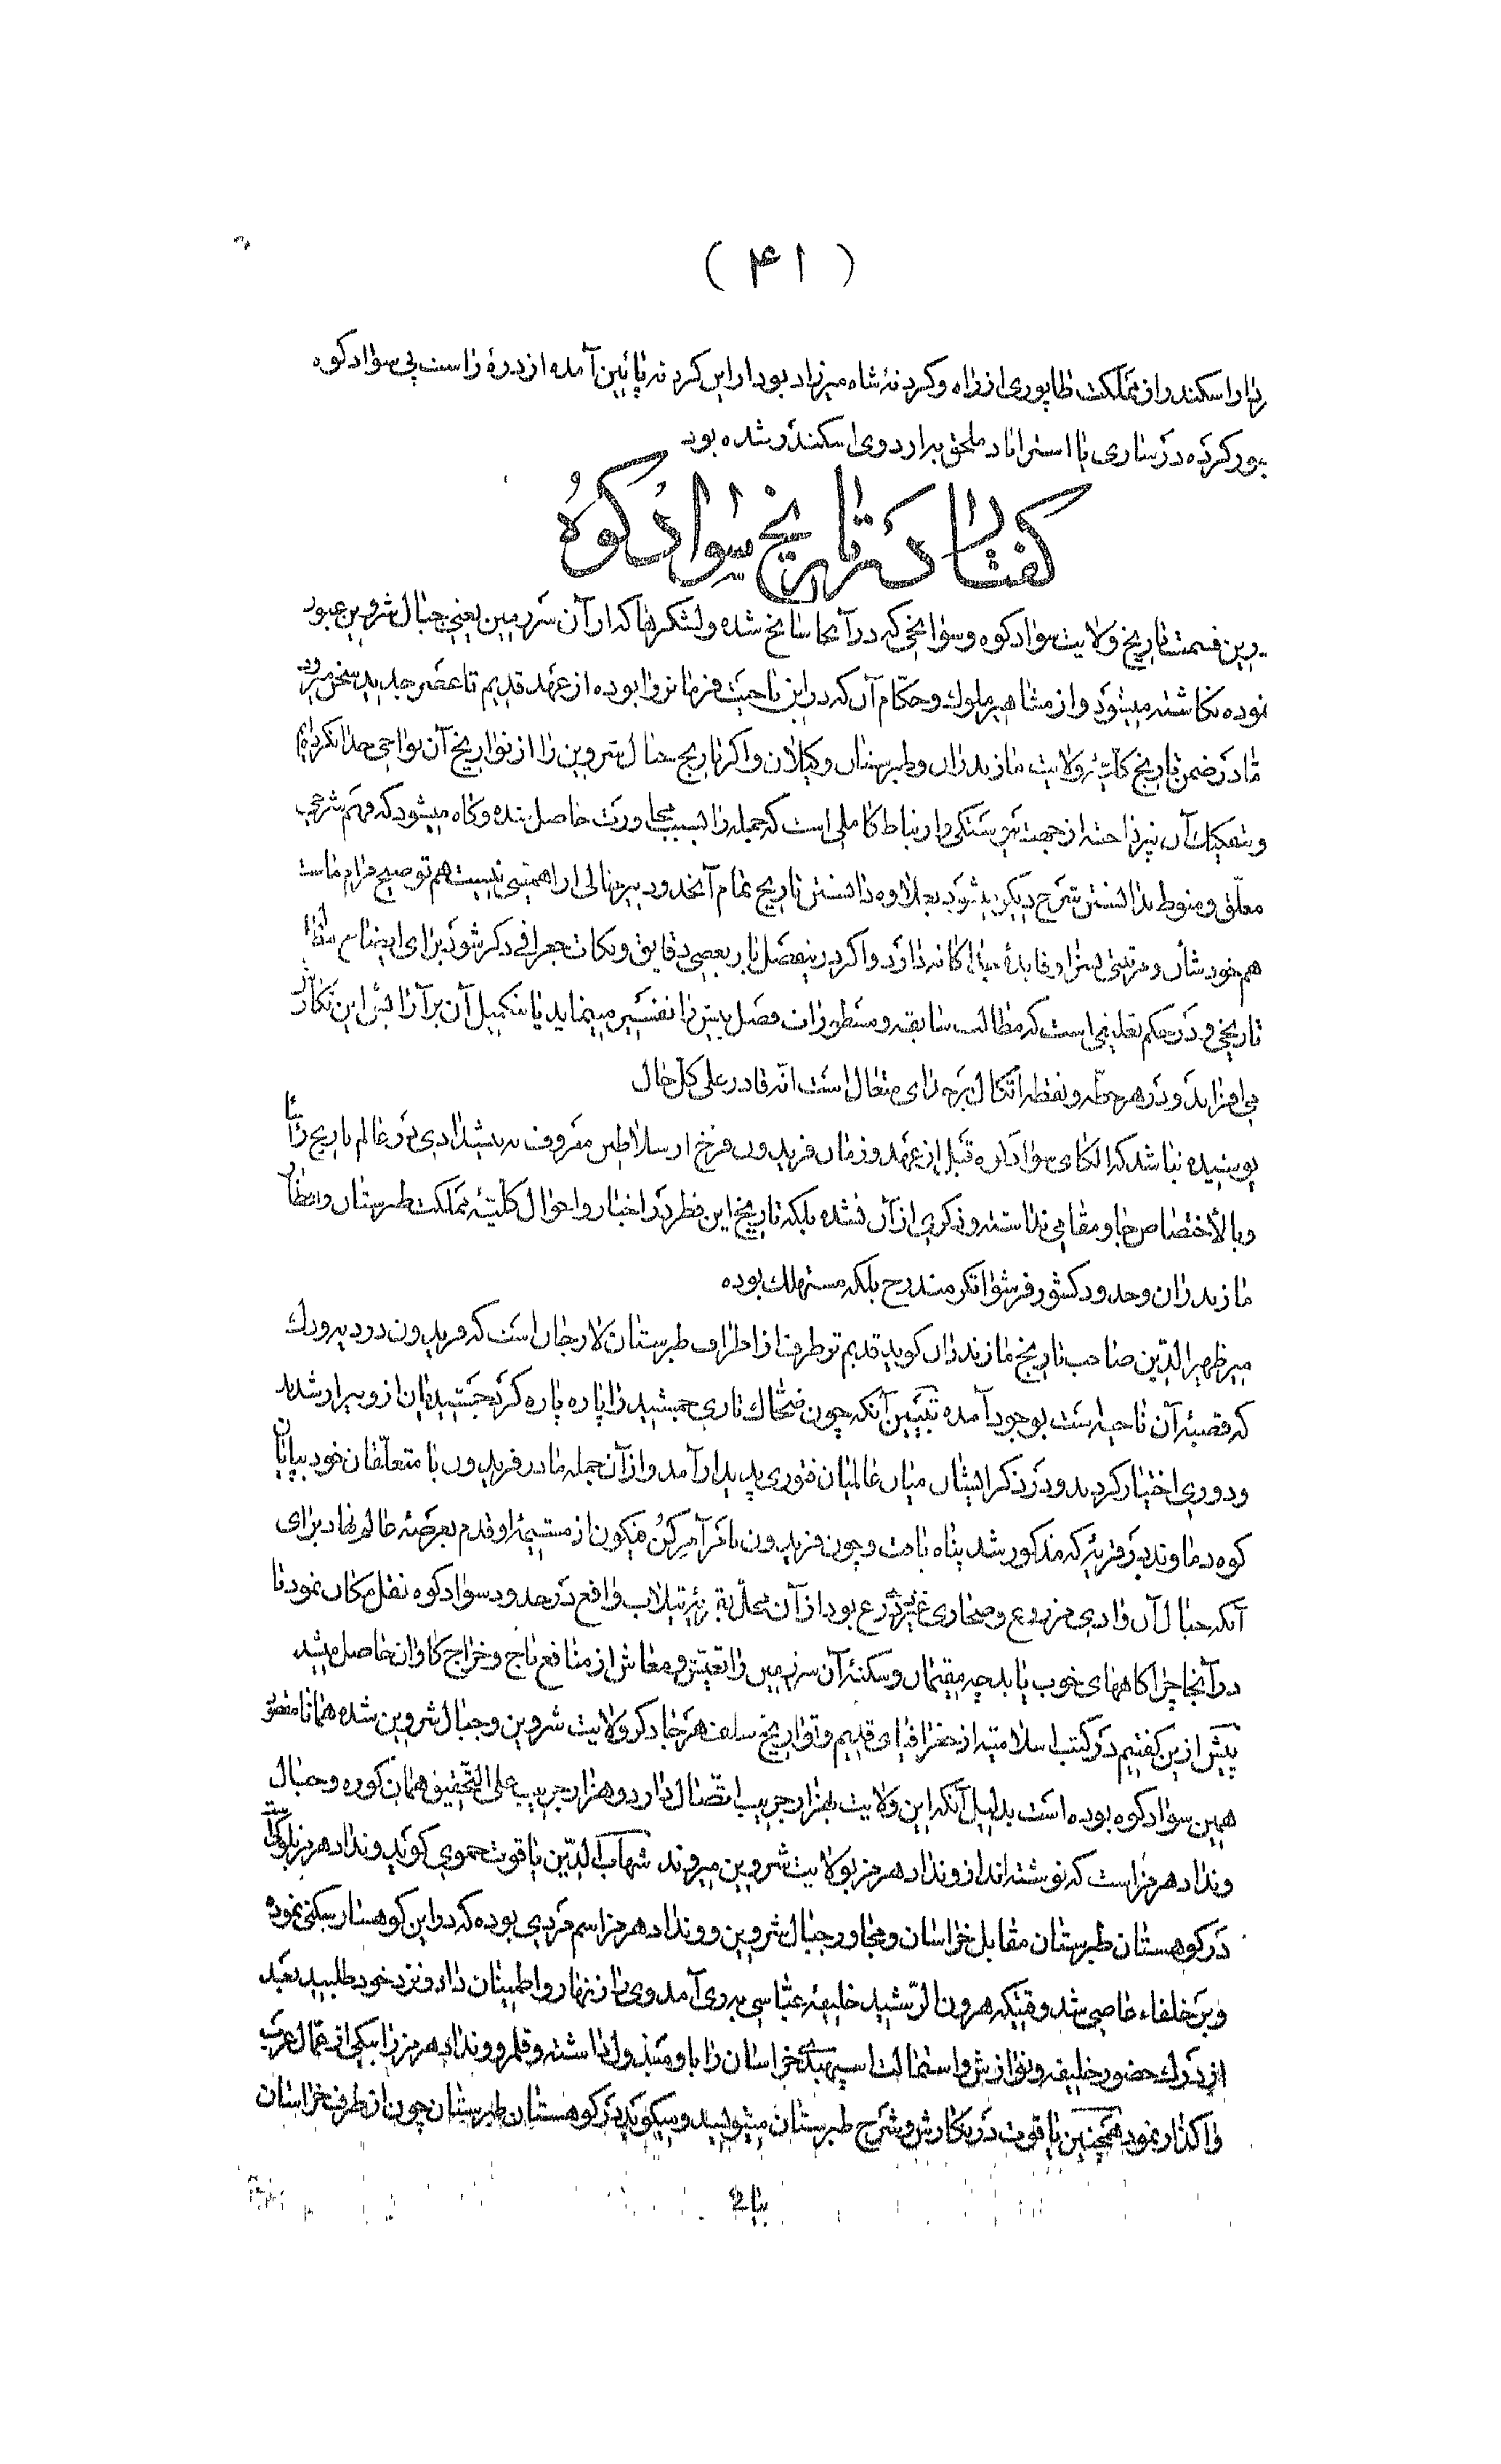 ( ۴۱ )
را اسکندر از مملکت طاپوری از راه و کردنهٔ شاه میرزاد بود از این کردنه پائین آمده از درهٔ راست پی سواد کوه
عبور کرده در ساری یا استراباد ملحق به اردوی اسکندر شده بود
کفتار در تاریخ سواد کوه
درین قسمت تاریخ ولایت سواد کوه و سوانحی که در آنجا سانح شده و لشکرها که از آن سرزمین یعنی جبال شروین عبور
نموده نکاشته میشود و از مشاهیر ملوك و حکّام آن که در این ناحیت فرمانروا بوده از عهد قدیم تا عصر جدید سخن میرود
اما در ضمن تاریخ کلیّهٔ ولایت مازندران و طبرستان و کیلان و اکر تاریخ جبال شروین را از تواریخ آن نواحی جدا نکرده‌ایم
و تفکیك آن نپرداخته از جهت پیوستکی و ارتباط کاملی است که جمله را بسبب مجاورت حاصل شده و کاه میشود که فهم شرحی
معلّق و منوط بدانستن شرح دیکر میشود بعلاوه دانستن تاریخ تمام آنحدود بیرون از اهمیتی نیست هم توضیح مرام ماست
هم خود شأن و مرتبتی بسزا و فایدهٔ جداکانه دارد و اکر درینفصل باز بعضی دقایق و نکات جغرافی ذکر شود برای
تاریخی و در حکم تعلیقی است که مطالب سابقه و مسطورات فصل پیش را تفسیر مینماید یا بتکمیل آن بر آرایش این نکارش
می‌افزاید و در هر خطّه و نقطه اتّکال بر خدای متعال است انّه قادر علی کلّ حال
پوشیده نباشد که الکای سواد کوه قبل از عهد و زمان فریدون فرّخ از سلاطین معروف به پیشدادی در عالم تاریخ رأساً
و بالأختصاص جا و مقامی نداشته و ذکری از آن نشده بلکه تاریخ این قطر در اخبار و احوال کلّیّهٔ مملکت طبرستان و
مازندران و حدود کشور فرشوادکر مندرج بلکه مستهلك بوده
میر ظهیر الدّین صاحب تاریخ مازندران کوید قدیم‌تر طرفی از اطراف طبرستان لارجان است که فریدون در دیه ورك
که قصبهٔ آن ناحیه است بوجود آمده تبیین آنکه چون ضحّاك تازی جمشید را پاره پاره کرد جمشیدیان از وی بیزار شدند
و دوری اختیار کردند و در ذکر ایشان میان عالمیان فتوری پدیدار آمد و از آن جمله مادر فریدون با متعلّقان خود بپایان
کوه دماوند در قریهٔ که مذکور شد پناه یافت و چون فریدون بامر آمر کن فیکون از مشیمهٔ او قدم بعرصهٔ عالم نهاد برای
آنکه جبال آن وادی مزروع و صحاری غیر ذی زرع بود از آن محلّ بقریهٔ شلاب واقع در حدود سواد کوه نقل مکان نمود تا
در آنجا چراکاههای خوب یابد چه مقیمان و سکنهٔ آن سرزمین را تعیّش و معاش از منافع نتاج و خراج کاوان حاصل میشد
پیش ازین کفتیم در کتب اسلامیّه از جغرافیای قدیم و تواریخ سلف هر جا ذکر ولایت شروین و جبال شروین شده همانا مقصود
همین سواد کوه بوده است بدلیل آنکه این ولایت بهزار جریب اتّصال دارد و هزار جریب علی التّحقیق همان کوره و جبال
ونداد هرمز است که نوشته‌اند از ونداد هرمز بولایت شروین میروند شهاب الدّین یاقوت حموی کوید ونداد هرمز بلوکی است
در کوهستان طبرستان مقابل خراسان و مجاور جبال شروین و ونداد هرمز اسم مردی بوده که در این کوهسار سکنی نموده
و بر خلفاء عاصی شد وقتیکه هرون الرّشید خلیفهٔ عبّاسی بری آمد وی را زنهار و اطمینان داد و نزد خود طلبید بعد
از درك حضور خلیفه و نوازش و استمالت اسپهبدی خراسان را باو مبذول داشته و قلمرو ونداد هرمز را بیکی از عمّال عرب
واکذار نمود همچنین یاقوت در نکارش و شرح طبرستان مینویسد و میکوید در کوهستان طبرستان چون از طرف خراسان
بیا2